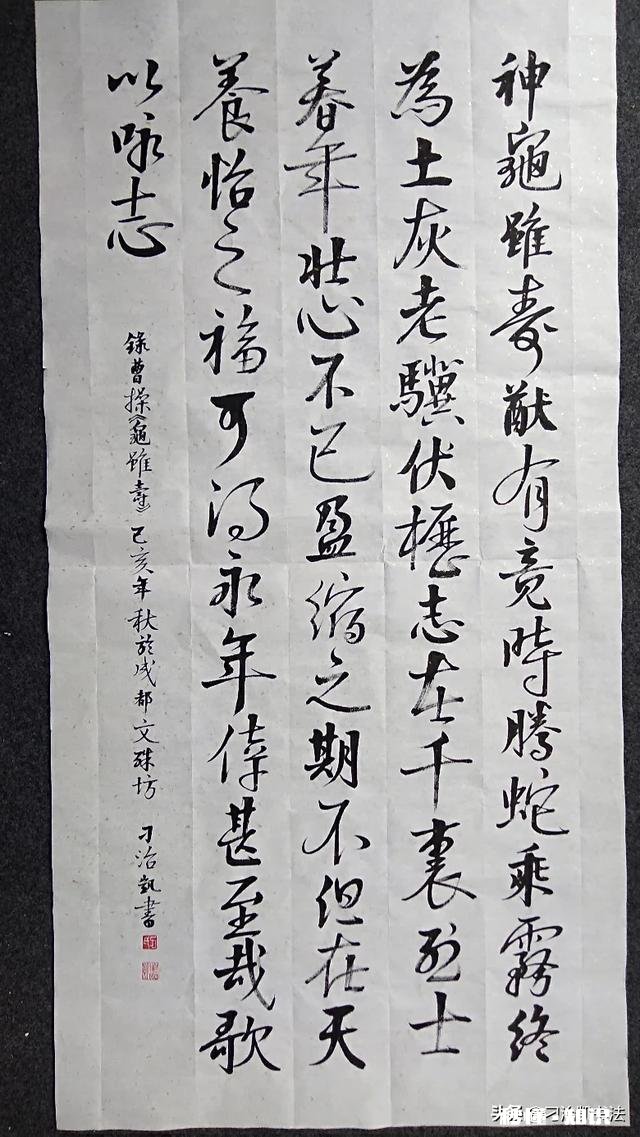 神龜雖壽猷有竟時騰蛇乘霧終
為土灰老驥伏櫪志在千裏烈士
暮年壯心不已盈縮之期不但在天
養怡之福可得永年倖甚至哉歌
以咏志
錄曹操《龜雖壽》己亥年秋於成都文殊坊 刁治凱書